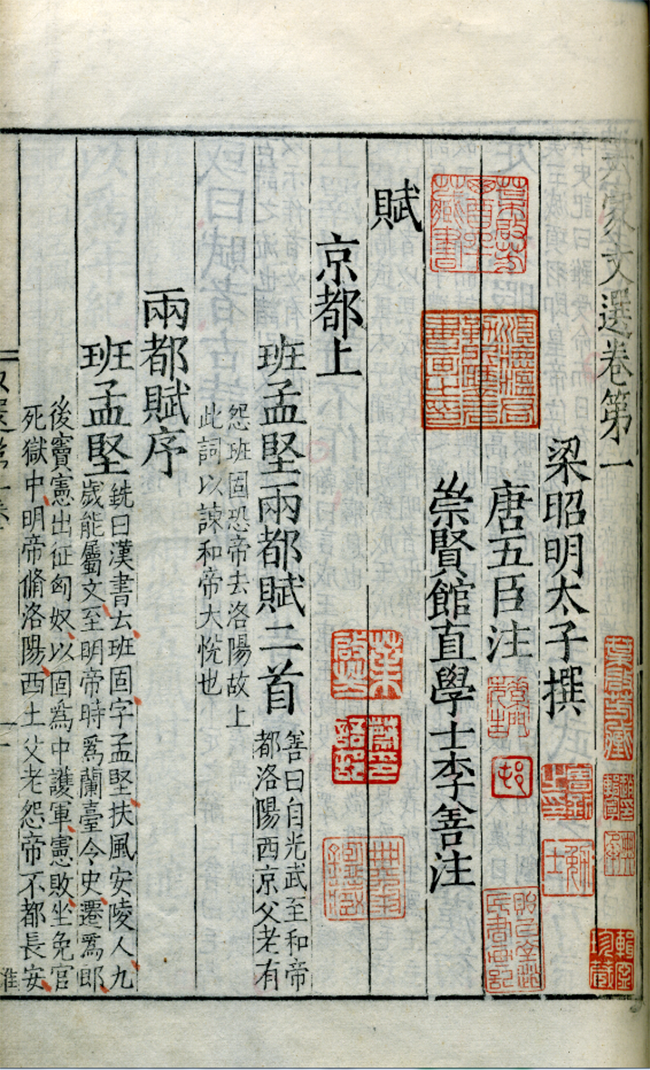 六家文選卷第一
梁昭明太子撰
唐五臣注
崇賢館直學士李善注
賦
京都上
班孟堅兩都賦二首
善曰自光武至和帝
都洛陽西京父老有
怨班固恐帝去洛陽故上
此詞以諫和帝大悅也
兩都賦序
班孟堅
銑曰漢書去班固字孟堅扶風安陵人九
歲能屬文至明帝時爲蘭臺令史遷爲郎
後竇憲出征匈奴以固爲中護軍憲敗坐免官
死獄中明帝脩洛陽西土父老怨帝不都長安